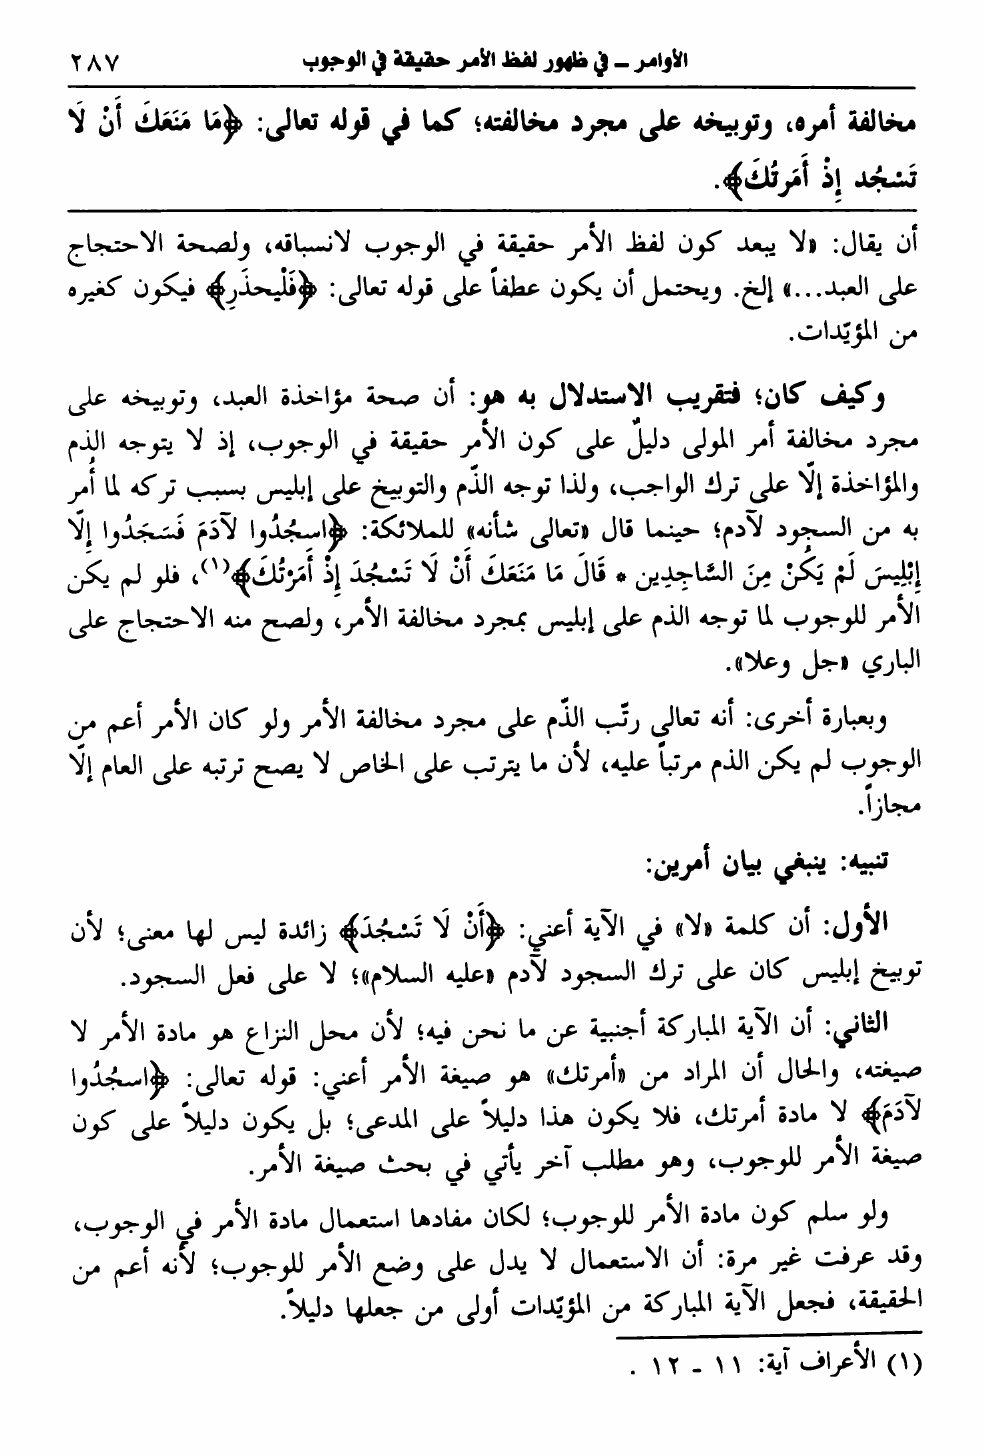 الأوامر ـ في ظهور لفظ الأمر حقيقة في الوجوب ٢٨٧
مخالفة أمره، وتوبيخه على مجرد مخالفته؛ كما في قوله تعالى: ﴿مَا مَنَعَكَ أَنْ لَا
تَسْجُد إِذْ أَمَرتُكَ﴾.
أن يقال: «لا يبعد كون لفظ الأمر حقيقة في الوجوب لانسباقه، ولصحة الاحتجاج
على العبد...» إلخ. ويحتمل أن يكون عطفاً على قوله تعالى: ﴿فَلْيحذَرِ﴾ فيكون كغيره
من المؤيّدات.
وكيف كان؛ فتقريب الاستدلال به هو: أن صحة مؤاخذة العبد، وتوبيخه على
مجرد مخالفة أمر المولى دليلٌ على كون الأمر حقيقة في الوجوب، إذ لا يتوجه الذم
والمؤاخذة إلّا على ترك الواجب، ولذا توجه الذّم والتوبيخ على إبليس بسبب تركه لما أُمر
به من السجود لآدم؛ حينما قال «تعالى شأنه» للملائكة: ﴿اسجُدُوا لآدَمَ فَسَجَدُوا إِلّا
إِبْلِيسَ لَمْ يَكُنْ مِنَ السَّاجِدِين * قَالَ مَا مَنَعَكَ أَنْ لَا تَسْجُدَ إِذْ أَمَرْتُكَ﴾(١)، فلو لم يكن
الأمر للوجوب لما توجه الذم على إبليس بمجرد مخالفة الأمر، ولصح منه الاحتجاج على
الباري «جل وعلا».
وبعبارة أخرى: أنه تعالى رتّب الذّم على مجرد مخالفة الأمر ولو كان الأمر أعم من
الوجوب لم يكن الذم مرتباً عليه، لأن ما يترتب على الخاص لا يصح ترتبه على العام إلّا
مجازاً.
تنبيه: ينبغي بيان أمرين:
الأول: أن كلمة «لا» في الآية أعني: ﴿أَنْ لَا تَسْجُدَ﴾ زائدة ليس لها معنى؛ لأن
توبيخ إبليس كان على ترك السجود لآدم «عليه السلام»؛ لا على فعل السجود.
الثاني: أن الآية المباركة أجنبية عن ما نحن فيه؛ لأن محل النزاع هو مادة الأمر لا
صيغته، والحال أن المراد من «أمرتك» هو صيغة الأمر أعني: قوله تعالى: ﴿اسجُدُوا
لآدَمَ﴾ لا مادة أمرتك، فلا يكون هذا دليلاً على المدعى؛ بل يكون دليلاً على كون
صيغة الأمر للوجوب، وهو مطلب آخر يأتي في بحث صيغة الأمر.
ولو سلم كون مادة الأمر للوجوب؛ لكان مفادها استعمال مادة الأمر في الوجوب،
وقد عرفت غير مرة: أن الاستعمال لا يدل على وضع الأمر للوجوب؛ لأنه أعم من
الحقيقة، فجعل الآية المباركة من المؤيّدات أولى من جعلها دليلاً.
(١) الأعراف آية: ١١ ـ ١٢ .